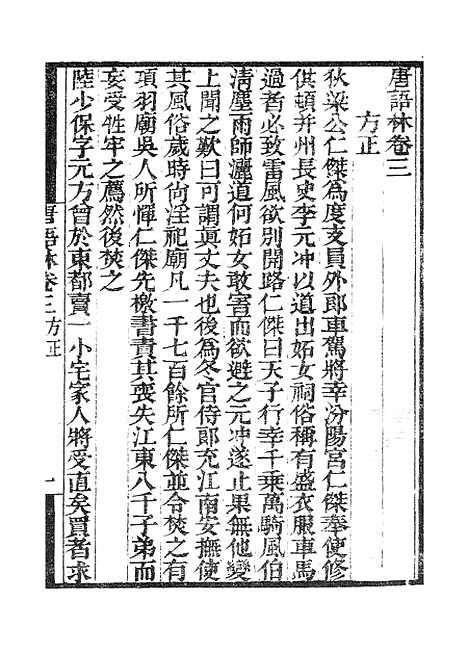 唐語林卷三
方正
狄梁公仁傑為度支員外郎車駕將幸汾陽宮仁傑奉使修
供頓并州長史李元冲以道出妬女祠俗稱有盛衣服車馬
過者必致雷風欲別開路仁傑曰天子行幸千乘萬騎風伯
清塵雨師灑道何妬女敢害而欲避之元冲遂止果無他變
上聞之歎曰可謂真丈夫也後為冬官侍郎充江南安撫使
其風俗歲時尚淫祀廟凡一千七百餘所仁傑並令焚之有
項羽廟吳人所憚仁傑先檄書責其喪失江東八千子弟而
妄受牲牢之薦然後焚之
陸少保字元方曾於東都賣一小宅家人將受直矣買者求
唐語林卷三方正 一